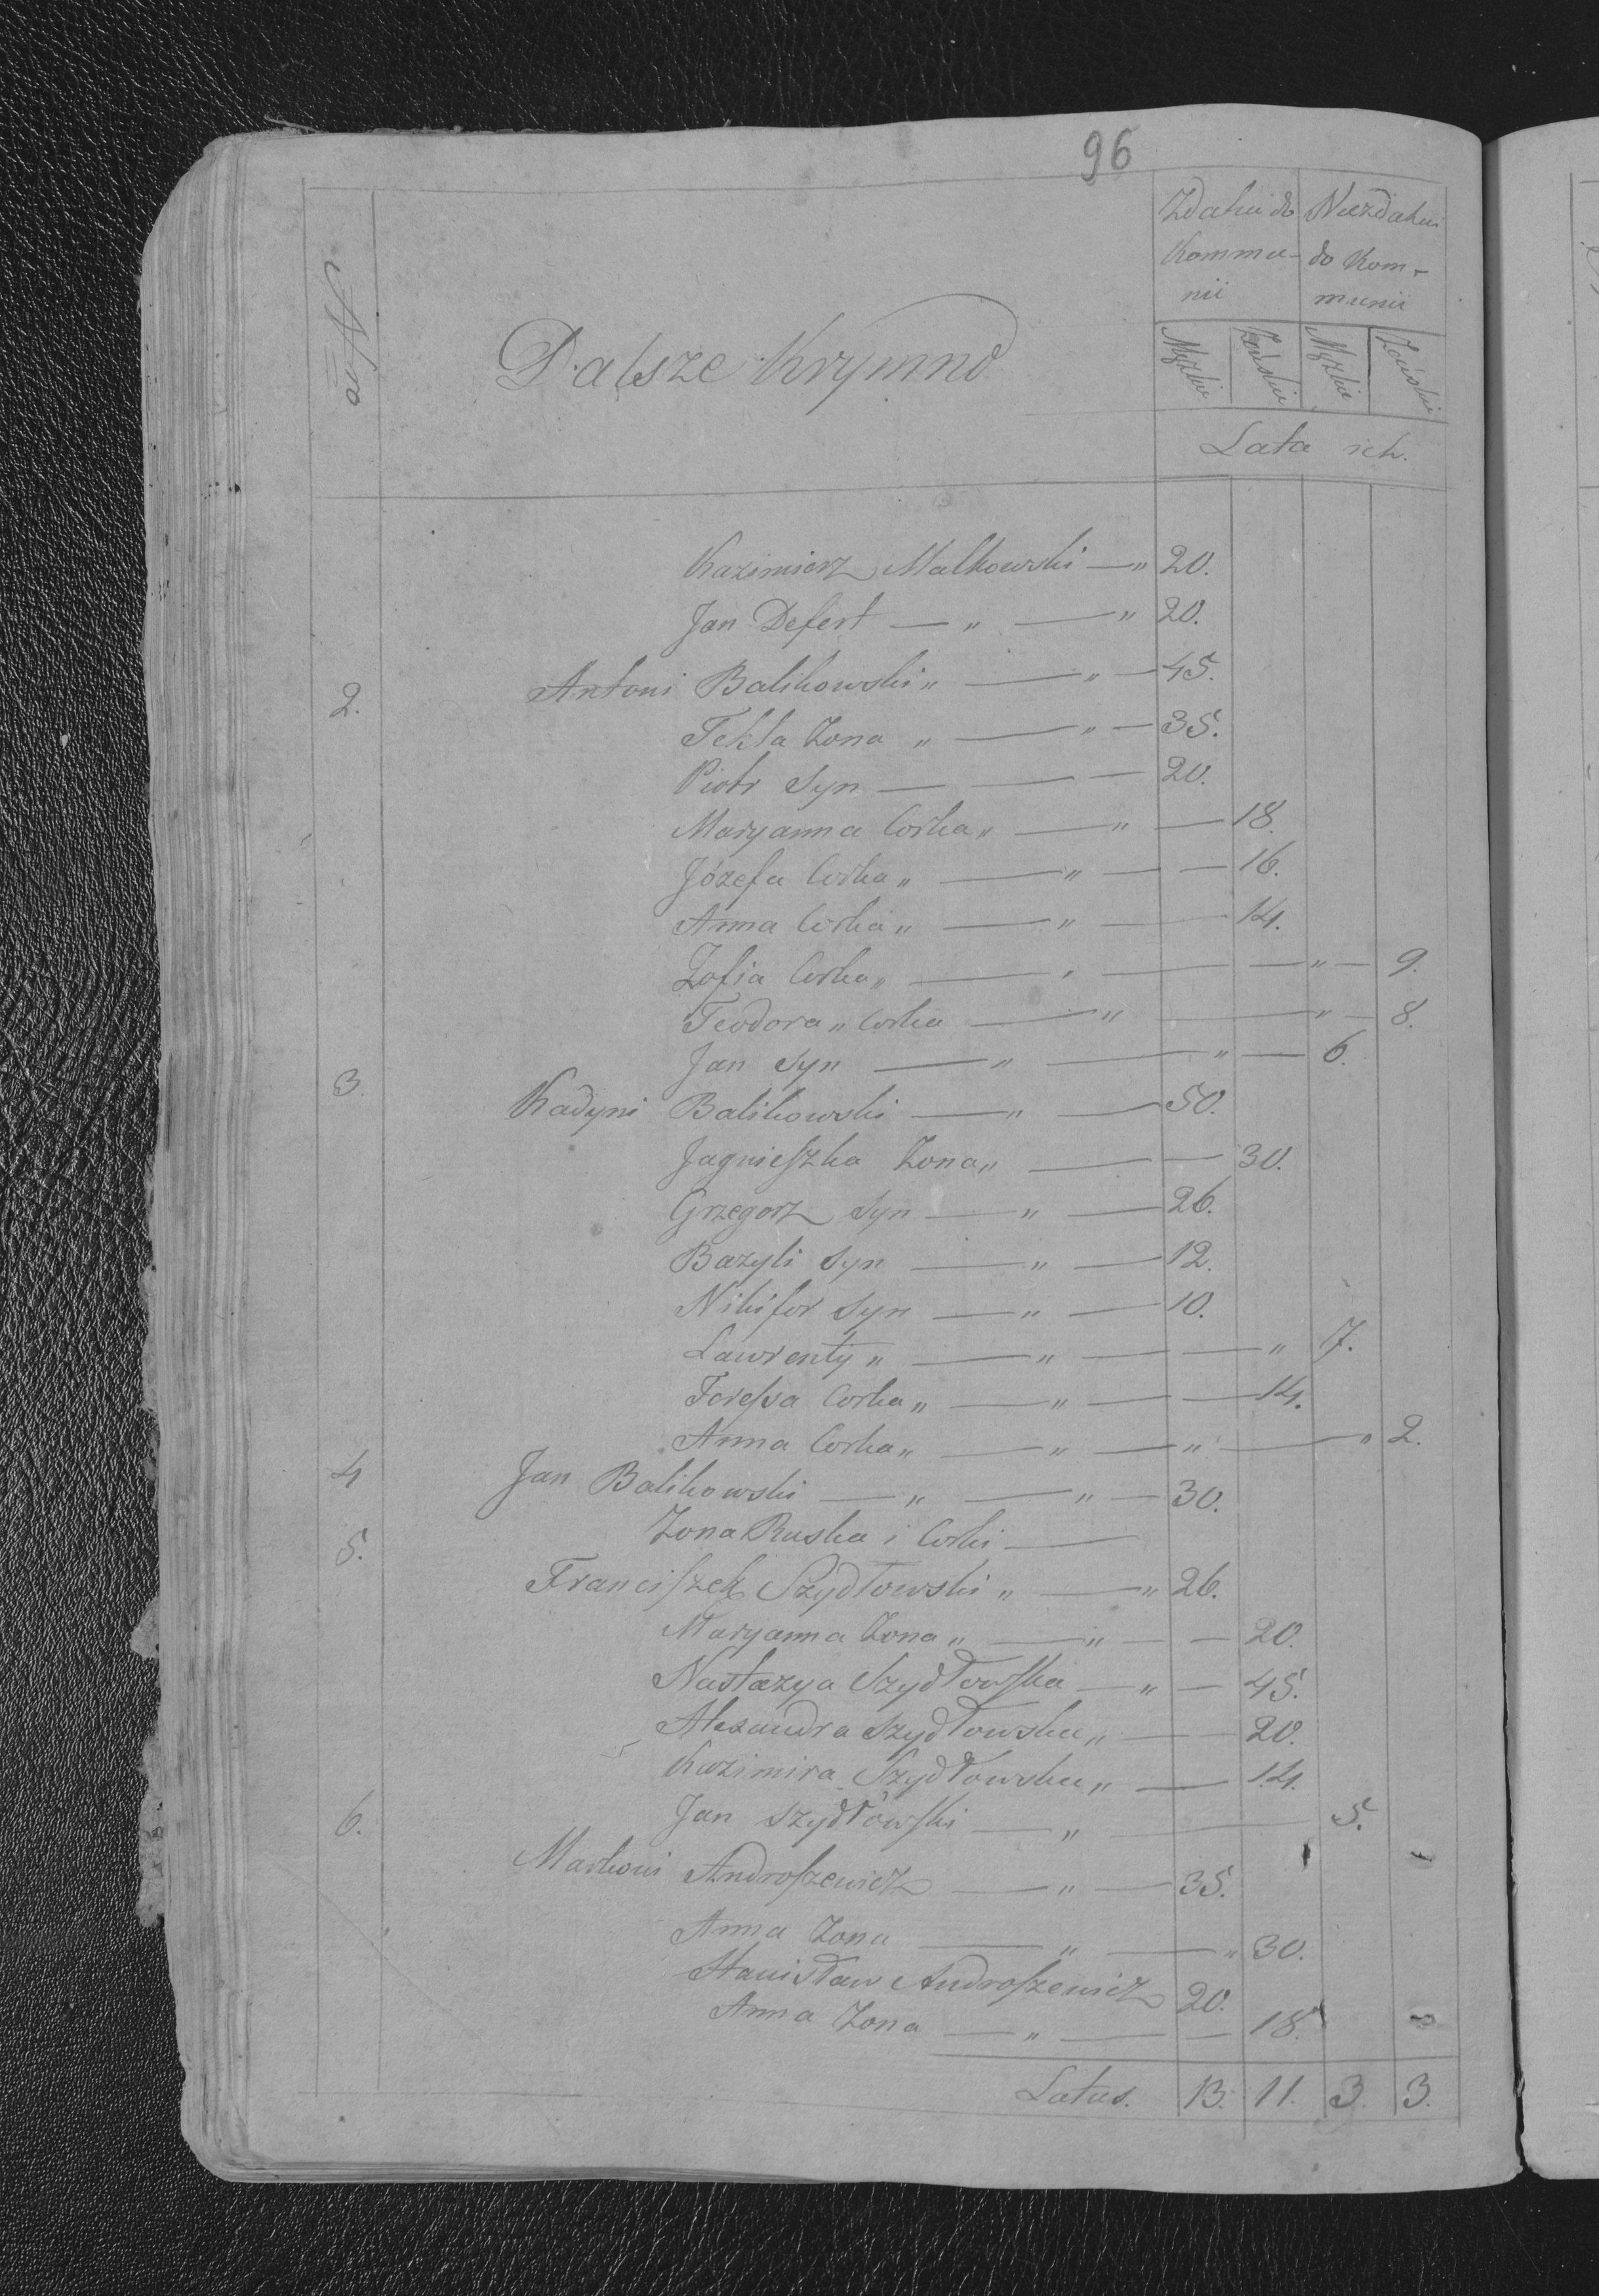 96
Nro
Dalsze Krymno
Zdatni do Kommunii
Niezdatni do Kommunii
Męzkie Żeńskie Męzkie Żeńskie
Lata ich.
Kazimierz Malkowski — " 20.
Jan Defert — " — " 20.
2. Antoni Balikowski " — " — 45.
Tekla Zona " — " — 35.
Piotr Syn — — — 20.
Maryanna Corka " — " — 18.
Józefa Corka " — " — — 16.
Anna Corka " — " — 14.
Zofia Corka " — " — — " — 9.
Teodora " Corka — " — " — 8.
Jan Syn — " — " — 6.
3. Balikowski — " — 50.
Jagnieszka Zona " — — 30.
Grzegorz Syn — " — 26.
Bazyli Syn — " — 12.
Nikifor Syn — " — 10.
Lawrenty " — " — — " 7.
Teressa Corka " — " — — 14.
Anna Corka " — " — " — " 2.
4 Jan Balikowski — " — " — 30.
Zona Ruska i Corki —
5. Franciszek Szydłowski " — " 26.
Maryanna Zona " — " — — 20.
Nastazya Szydłowska — " — 45.
Alexandra Szydłowska " — — 20.
Kazimira Szydłowska " — 14.
Jan Szydłowski — " — 5.
6. Androszewicz — " — 35.
Anna Zona — " — " 30.
Stanisław Androszewicz 20.
Anna Zona — " — — 18.
Latus. 13. 11. 3. 3.